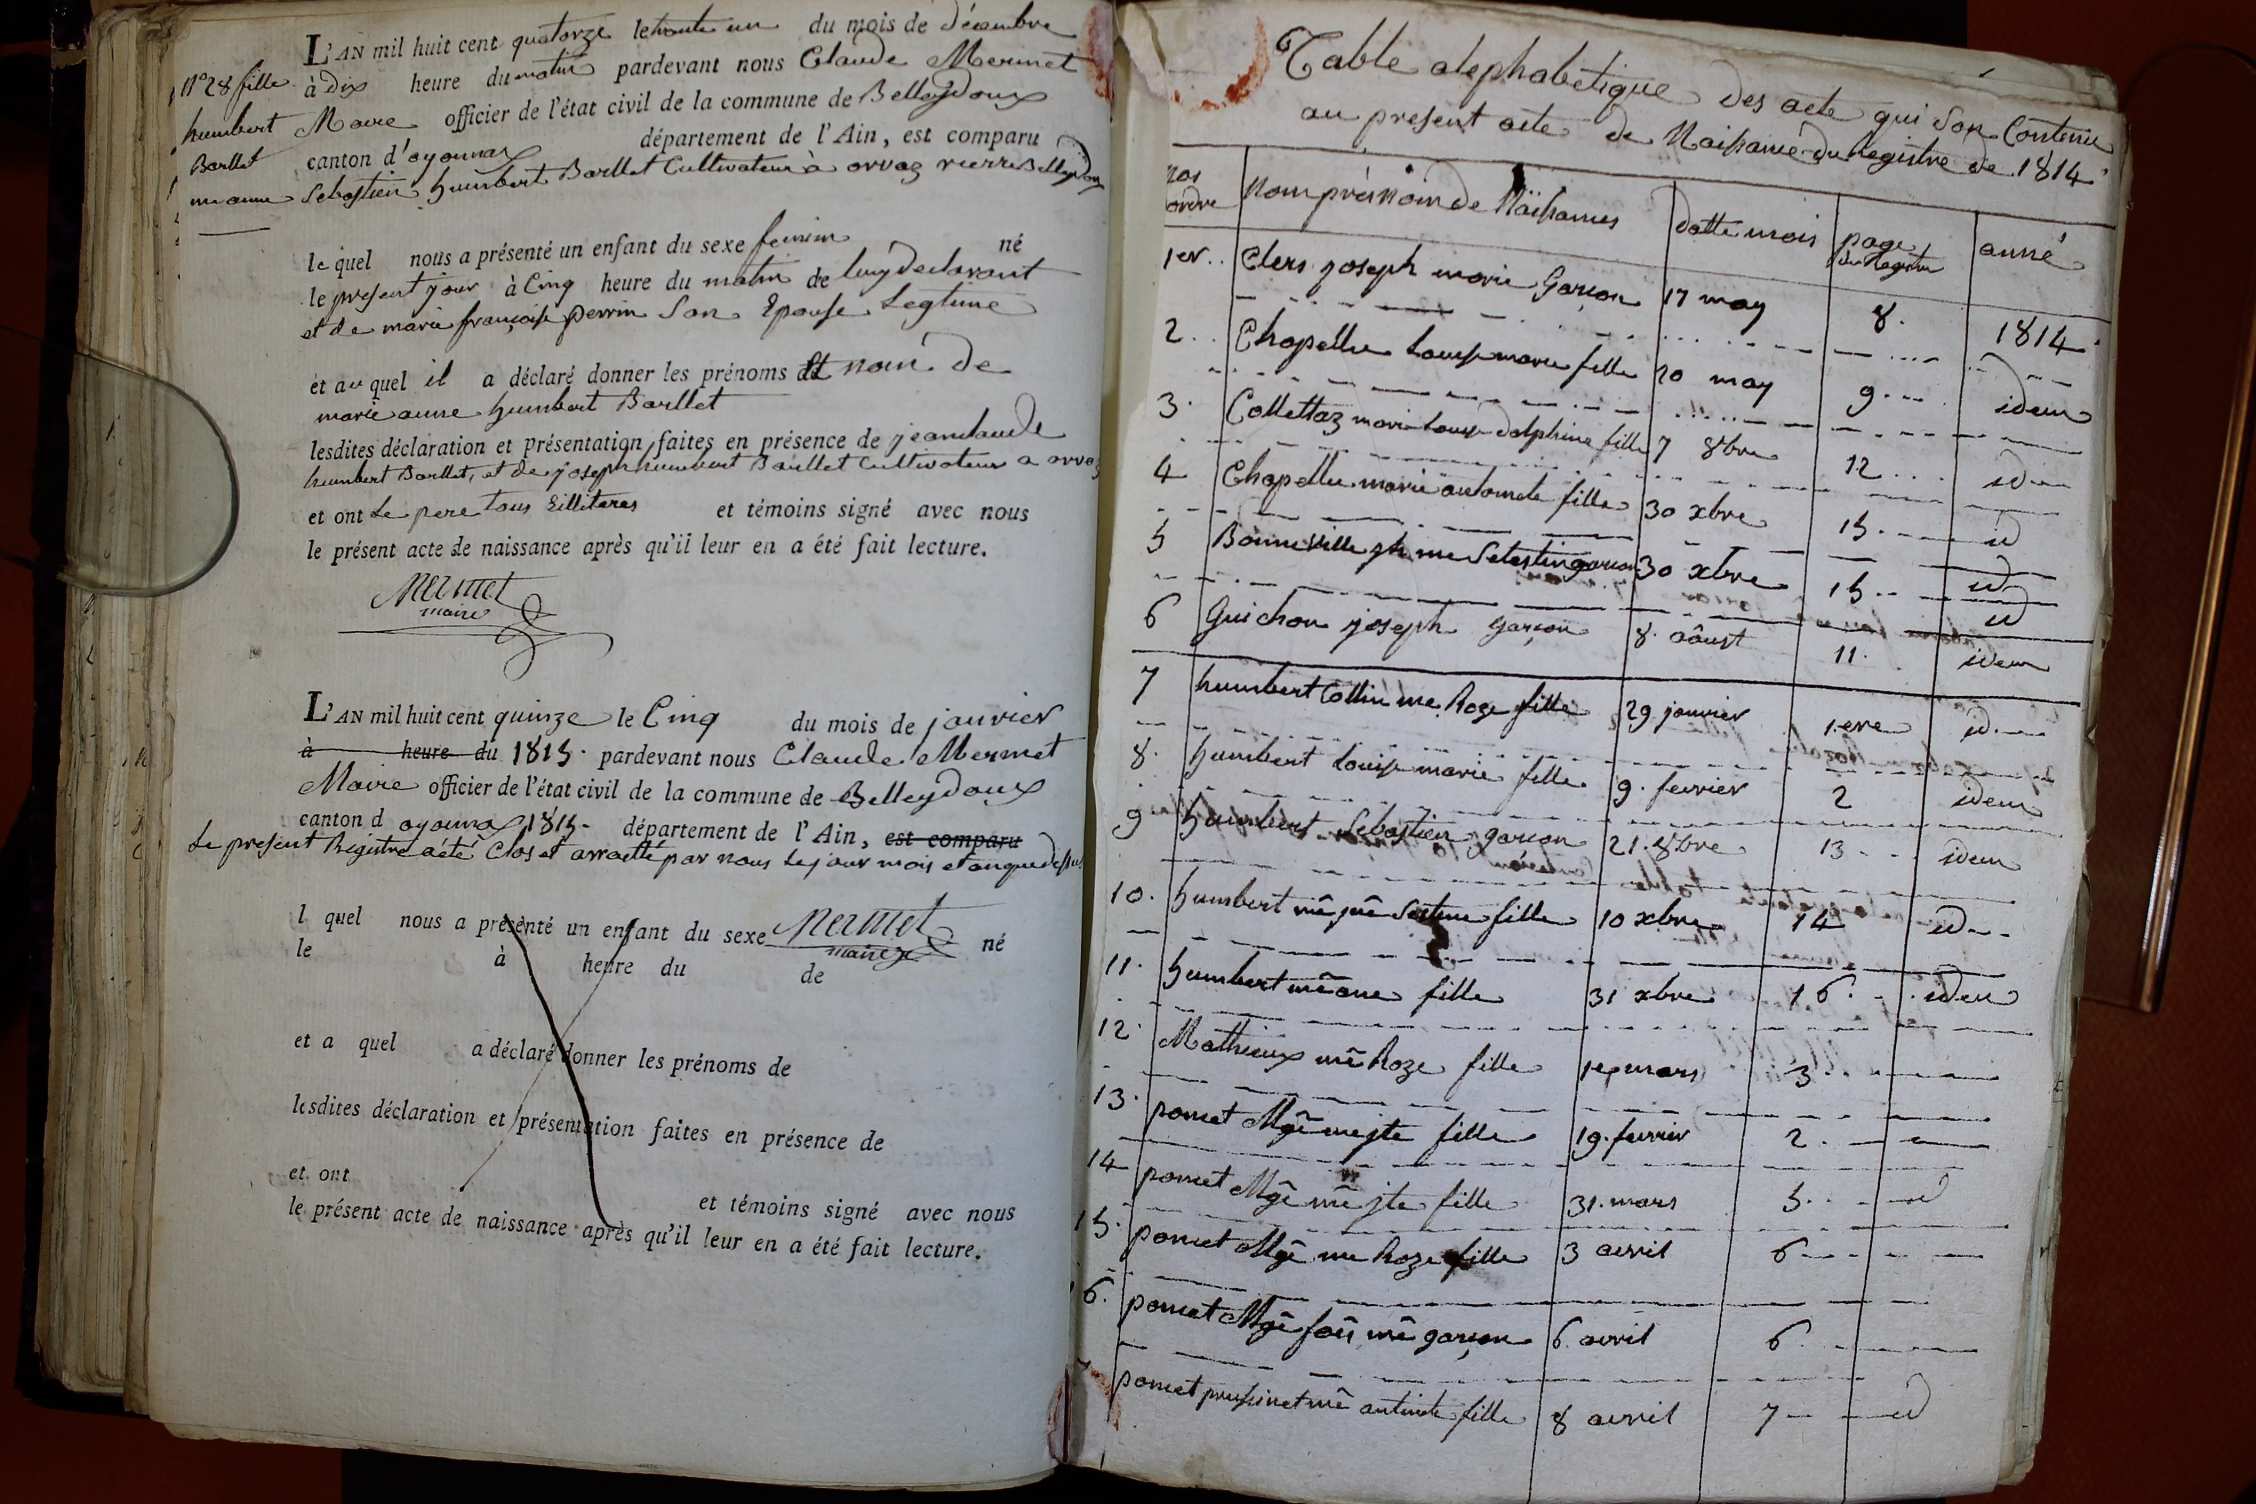 L'AN mil huit cent quatorze le trente un du mois de décembre
N° 28 fille à dix heure du matin pardevant nous Claude Mermet
humbert Maire officier de l'état civil de la commune de Belleydoux
Barllet canton d'oyonnax département de l'Ain, est comparu
me anne Sebastien humbert Barllet Cultivateur à orvaz rierre Belleydoux
le quel nous a présenté un enfant du sexe feminin né
le present jour à Cinq heure du matin de luy declarant
et de marie françoise perrin Son Epouse Legtime
et au quel il a déclaré donner les prénoms et nom de
marie anne humbert Barllet
lesdites déclaration et présentation faites en présence de jeanclaude
humbert Barllet, et de joseph humbert Barllet Cultivateur a orvaz
et ont Le pere tous Eillitares et témoins signé avec nous
le présent acte de naissance après qu'il leur en a été fait lecture.
Mermet
maire
L'AN mil huit cent quinze le Cinq du mois de janvier
à heure du 1815. pardevant nous Claude Mermet
Maire officier de l'état civil de la commune de Belleydoux
canton d oyonnax 1815- département de l'Ain, est comparu
Le present Registre a été Clos et arraetté par nous Le jour mois et an que dessus
l quel nous a présenté un enfant du sexe Mermet né
maire
le à heure du de
et a quel a déclaré donner les prénoms de
lesdites déclaration et présentation faites en présence de
et ont et témoins signé avec nous
le présent acte de naissance après qu'il leur en a été fait lecture.
Table alephabetique des acte qui Son Contenu
au present acte de Naissance du Registre de 1814
nos ordre nom prénoin de Naissances datte mois page du Registre anné
1er.. Clerc joseph marie Garçon 17 may 8. 1814
2.. Chapellu Louise marie fille 20 may 9... idem
3. Collettaz marie Louise delphine fille 7 8bre 12... id
4 Chapellu marie antoinete fille 30 xbre 15. id
5 Bonneville me Selestin garçon 30 xbre 15.. id
id
6 Guichon joseph garçon 8. aôust 11. idem
7 humbert Collin me Roze fille 29 janvier 1.ere id
8. humbert Louise marie fille 9. fevrier 2 idem
9 humbert Sebastien garçon 21. 8bre 13 idem
10. humbert mê fille 10 xbre 14 id
11. humbert mê ane fille 31 xbre 16. idem
12. Mathieux mê Roze fille mars 3.
13. poncet Mgê me jte fille 19. fevrier 2.
14 poncet Mgê mê jte fille 31. mars 5.. id
15. poncet Mgê me Roze fille 3 avril 6
16. poncet Mgê fois mê garçon 6. avril 6.
poncet mê antinete fille 8 avril 7 id